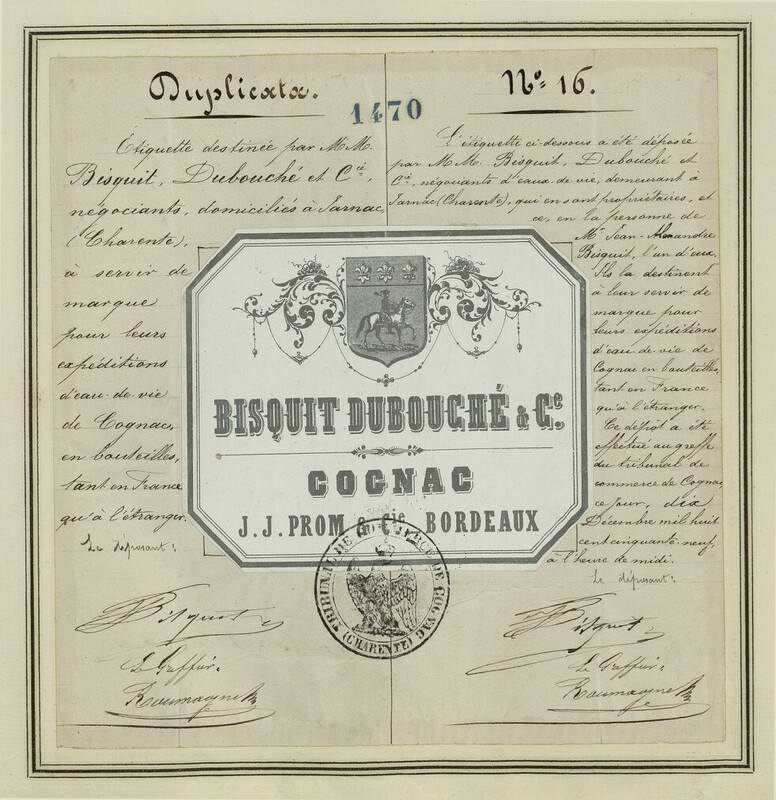 Duplicata.
Nº 16.
1470
Étiquette destinée par MM.
Bisquit, Dubouché et Cie,
négociants, domiciliés à Jarnac
(Charente),
à servir de
marque
pour leurs
expéditions
d'eau-de-vie
de Cognac,
en bouteilles,
tant en France
qu'à l'étranger.
Le déposant:
Bisquit
Le Greffier:
L'étiquette ci-dessous a été déposée
par MM. Bisquit, Dubouché et
Cie, négociants d'eaux-de-vie, demeurant à
Jarnac (Charente), qui en sont propriétaires, et
ce, en la personne de
Mr Jean-Alexandre
Bisquit, l'un d'eux.
Ils la destinent
à leur servir de
marque pour
leurs expéditions
d'eau-de-vie de
Cognac en bouteilles,
tant en France
qu'à l'étranger.
Ce dépôt a été
effectué au greffe
du tribunal de
commerce de Cognac
ce jour, dix
Décembre mil huit
cent cinquante-neuf,
à l'heure de midi.
Le déposant:
Bisquit
Le Greffier:
BISQUIT DUBOUCHÉ & Ce.
COGNAC
J. J. PROM & Cie BORDEAUX
TRIBUNAL DE COMMERCE DE COGNAC
(CHARENTE)